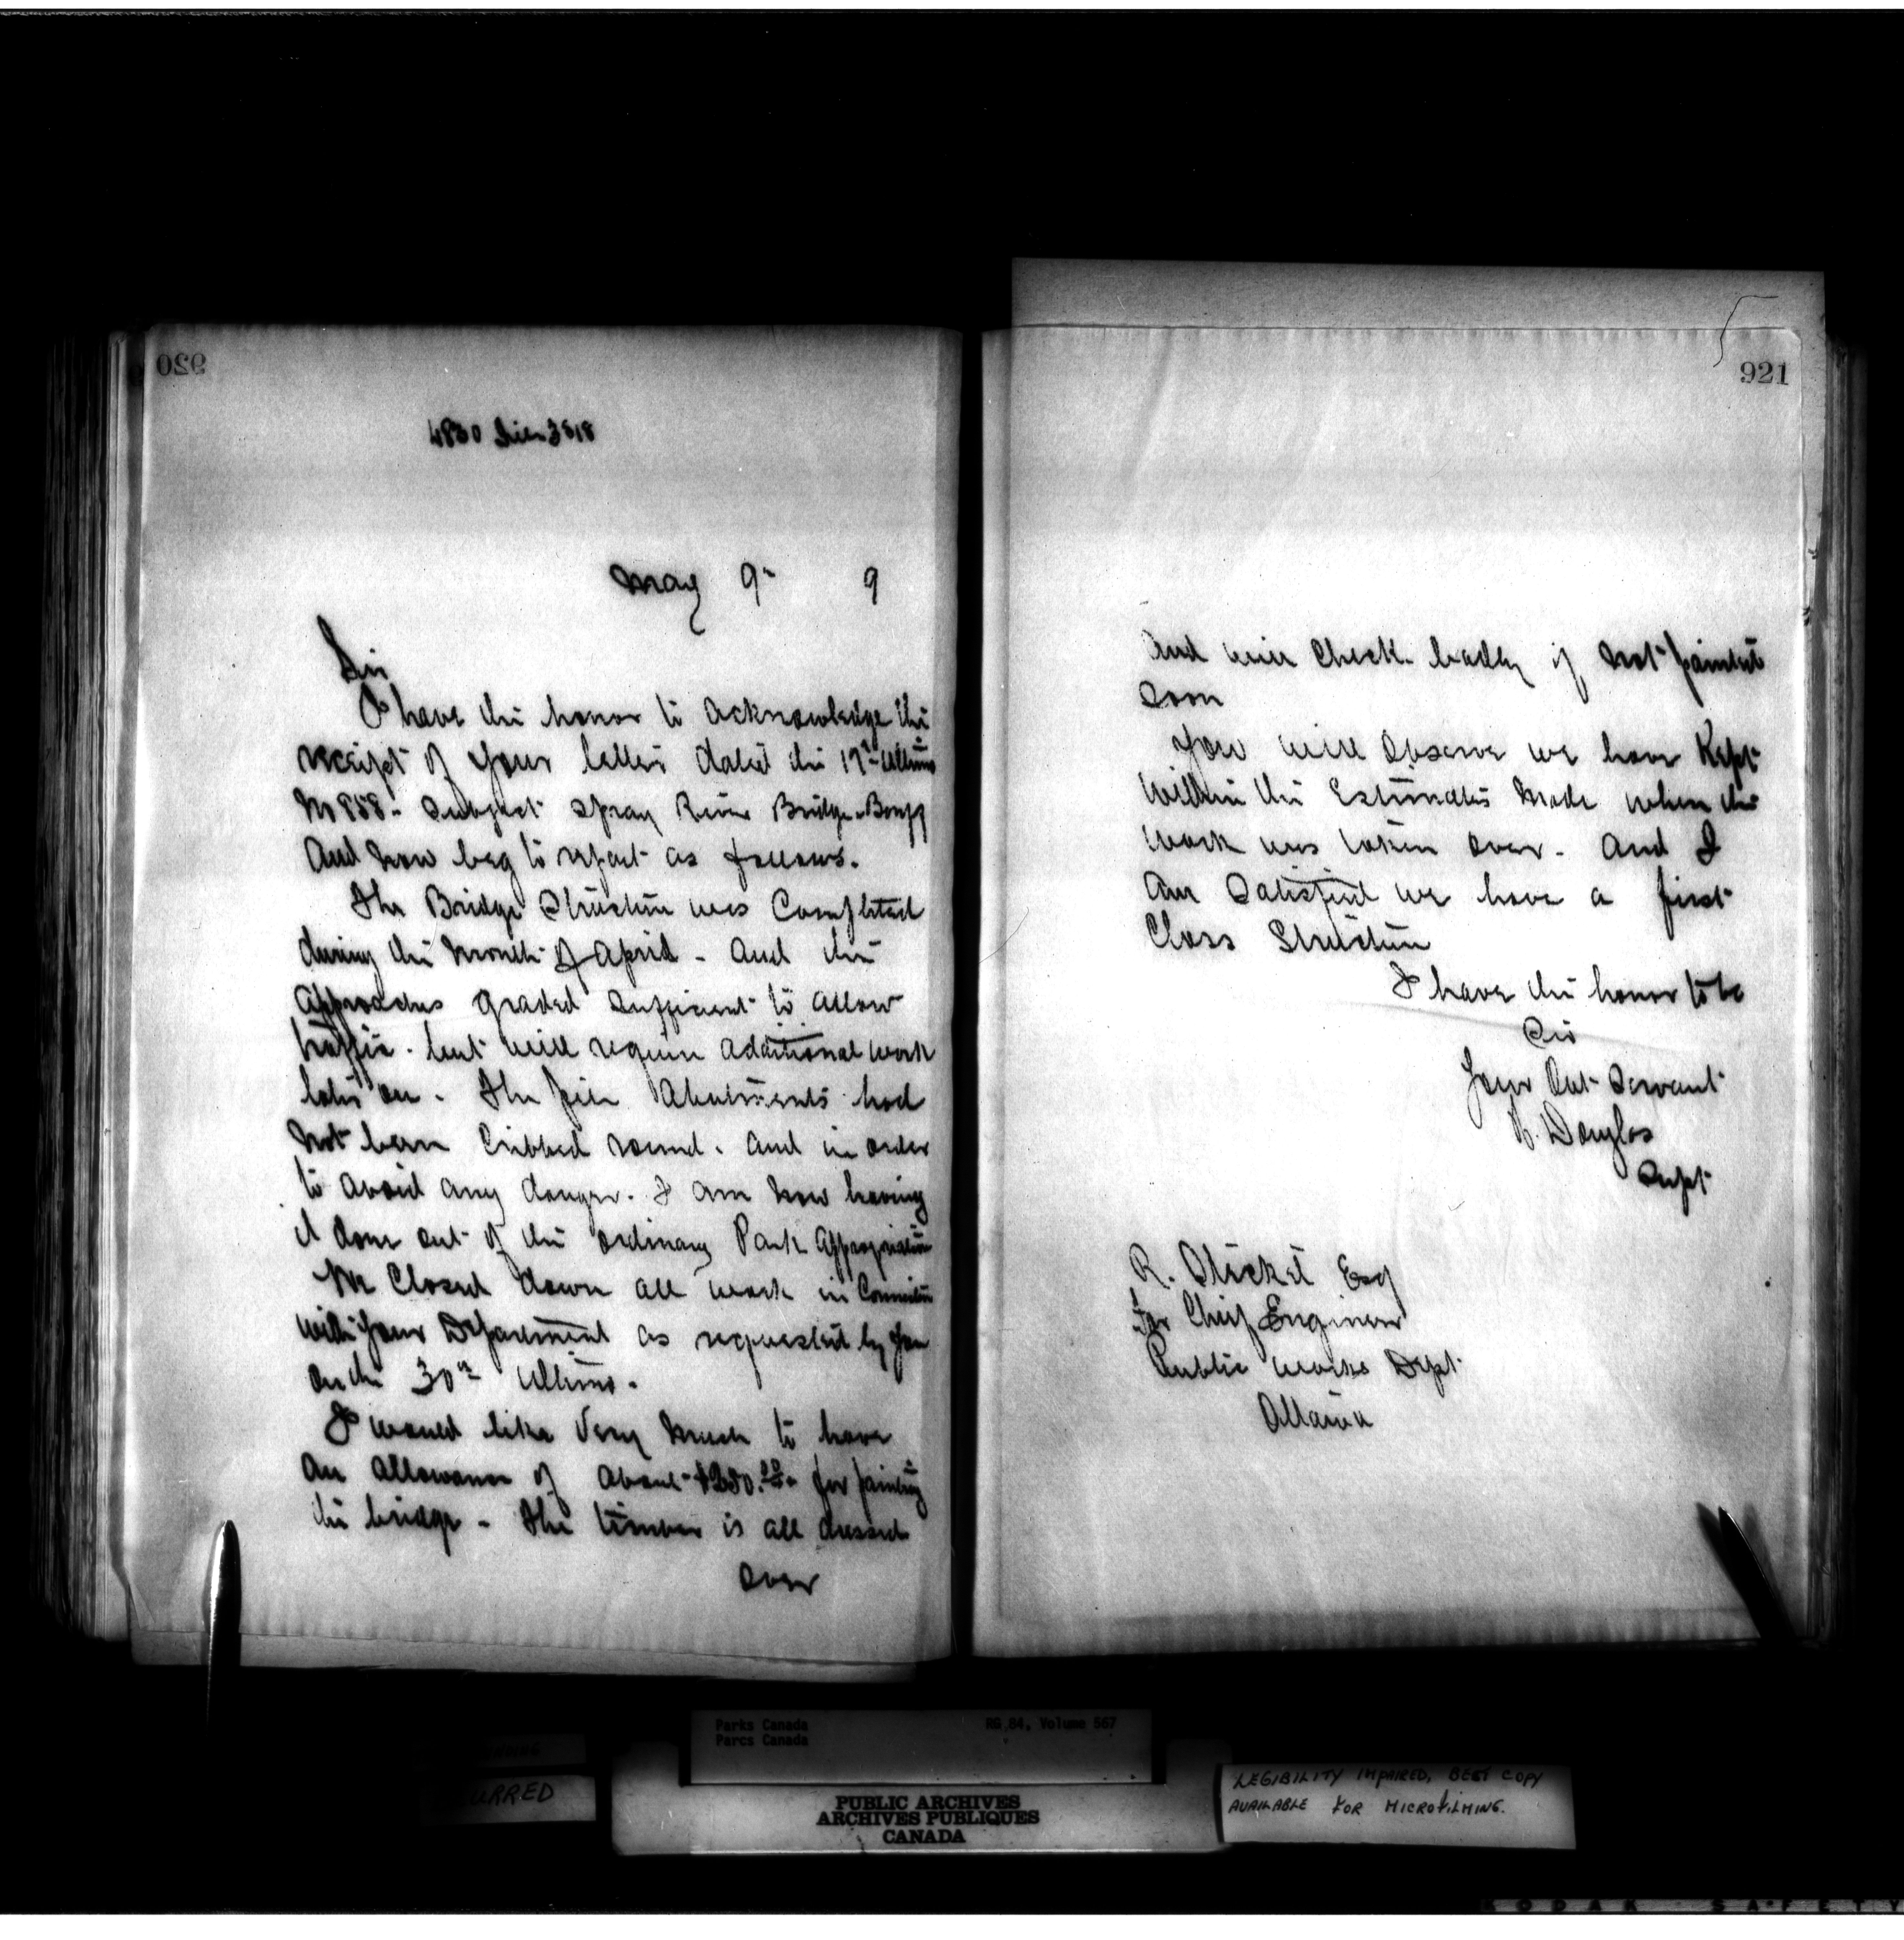 920
4830
May 9th 9
Sir
I have the honor to acknowledge the
receipt of your letter dated the 17th Ultimo
No 858. Subject Spray River Bridge - Banff
And now beg to report as follows.
The Bridge Structure was Completed
during the month of April - And the
Approaches graded sufficient to allow
traffic. but will require additional work
later on. The pile Abutments had
not been Cribbed round. And in order
to avoid any danger. I am now having
it done out of the ordinary Park Appropriation
We Closed down all work in Connection
with your Department as requested by you
on the 30th Ultimo.
I would like Very much to have
An allowance of about $250.00 for painting
the bridge - The timber is all dressed
over
921
And will Check badly if not painted
soon
You will Observe we have Kept
Within the Estimates Made when the
Work was taken over. And I
Am Satisfied we have a first
Class Structure
I have the honor to be
Sir
Your Obt Servant
H. Douglas
Supt
R. Steckel Esq
For Chief Engineer
Public Works Dept
Ottawa
Parks Canada
Parcs Canada
RG 84, Volume 567
PUBLIC ARCHIVES
ARCHIVES PUBLIQUES
CANADA
LEGIBILITY IMPAIRED, BEST COPY
AVAILABLE FOR MICROFILMING.
KODAK SAFETY